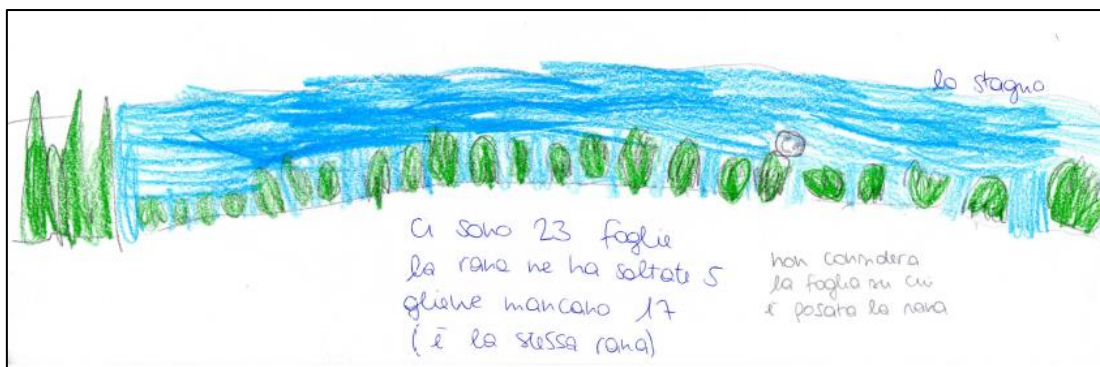 lo stagno
Ci sono 23 foglie
la rana ne ha saltate 5
gliene mancano 17
(è la stessa rana)
non considera
la foglia su cui
è posata la rana